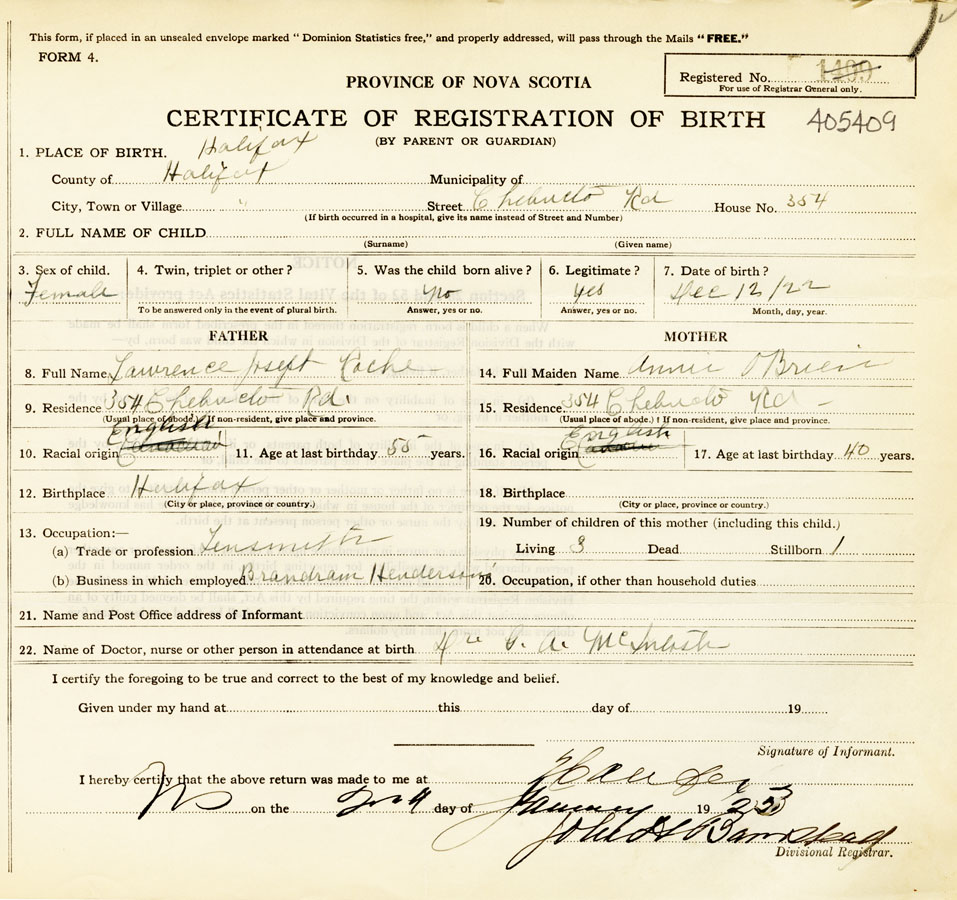 This form, if placed in an unsealed envelope marked "Dominion Statistics free," and properly addressed, will pass through the Mails "FREE."
FORM 4.
Registered No. 1409
For use of Registrar General only.
PROVINCE OF NOVA SCOTIA
CERTIFICATE OF REGISTRATION OF BIRTH 405409
(BY PARENT OR GUARDIAN)
1. PLACE OF BIRTH. Halifax
County of Halifax Municipality of
City, Town or Village " Street Chebucto Rd House No. 354
(If birth occurred in a hospital, give its name instead of Street and Number)
2. FULL NAME OF CHILD
(Surname) (Given name)
3. Sex of child. 4. Twin, triplet or other? 5. Was the child born alive? 6. Legitimate? 7. Date of birth?
Female no yes Dec 12/22
To be answered only in the event of plural birth. Answer, yes or no. Answer, yes or no. Month, day, year.
FATHER MOTHER
8. Full Name Lawrence Joseph Roche 14. Full Maiden Name Annie O'Brien
9. Residence 354 Chebucto Rd. 15. Residence 354 Chebucto Rd
(Usual place of abode.) If non-resident, give place and province. (Usual place of abode.) If non-resident, give place and province.
English English
10. Racial origin Canadian 11. Age at last birthday years. 16. Racial origin Canadian 17. Age at last birthday 40 years.
12. Birthplace Halifax 18. Birthplace
(City or place, province or country.) (City or place, province or country.)
19. Number of children of this mother (including this child.)
13. Occupation:—
(a) Trade or profession Tinsmith Living 3 Dead Stillborn 1
(b) Business in which employed Brandram Henderson 20. Occupation, if other than household duties
21. Name and Post Office address of Informant
22. Name of Doctor, nurse or other person in attendance at birth Dr G. A. McIntosh
I certify the foregoing to be true and correct to the best of my knowledge and belief.
Given under my hand at this day of 19
Signature of Informant.
I hereby certify that the above return was made to me at Halifax
NS on the day of January 1923
John H Barnstead
Divisional Registrar.